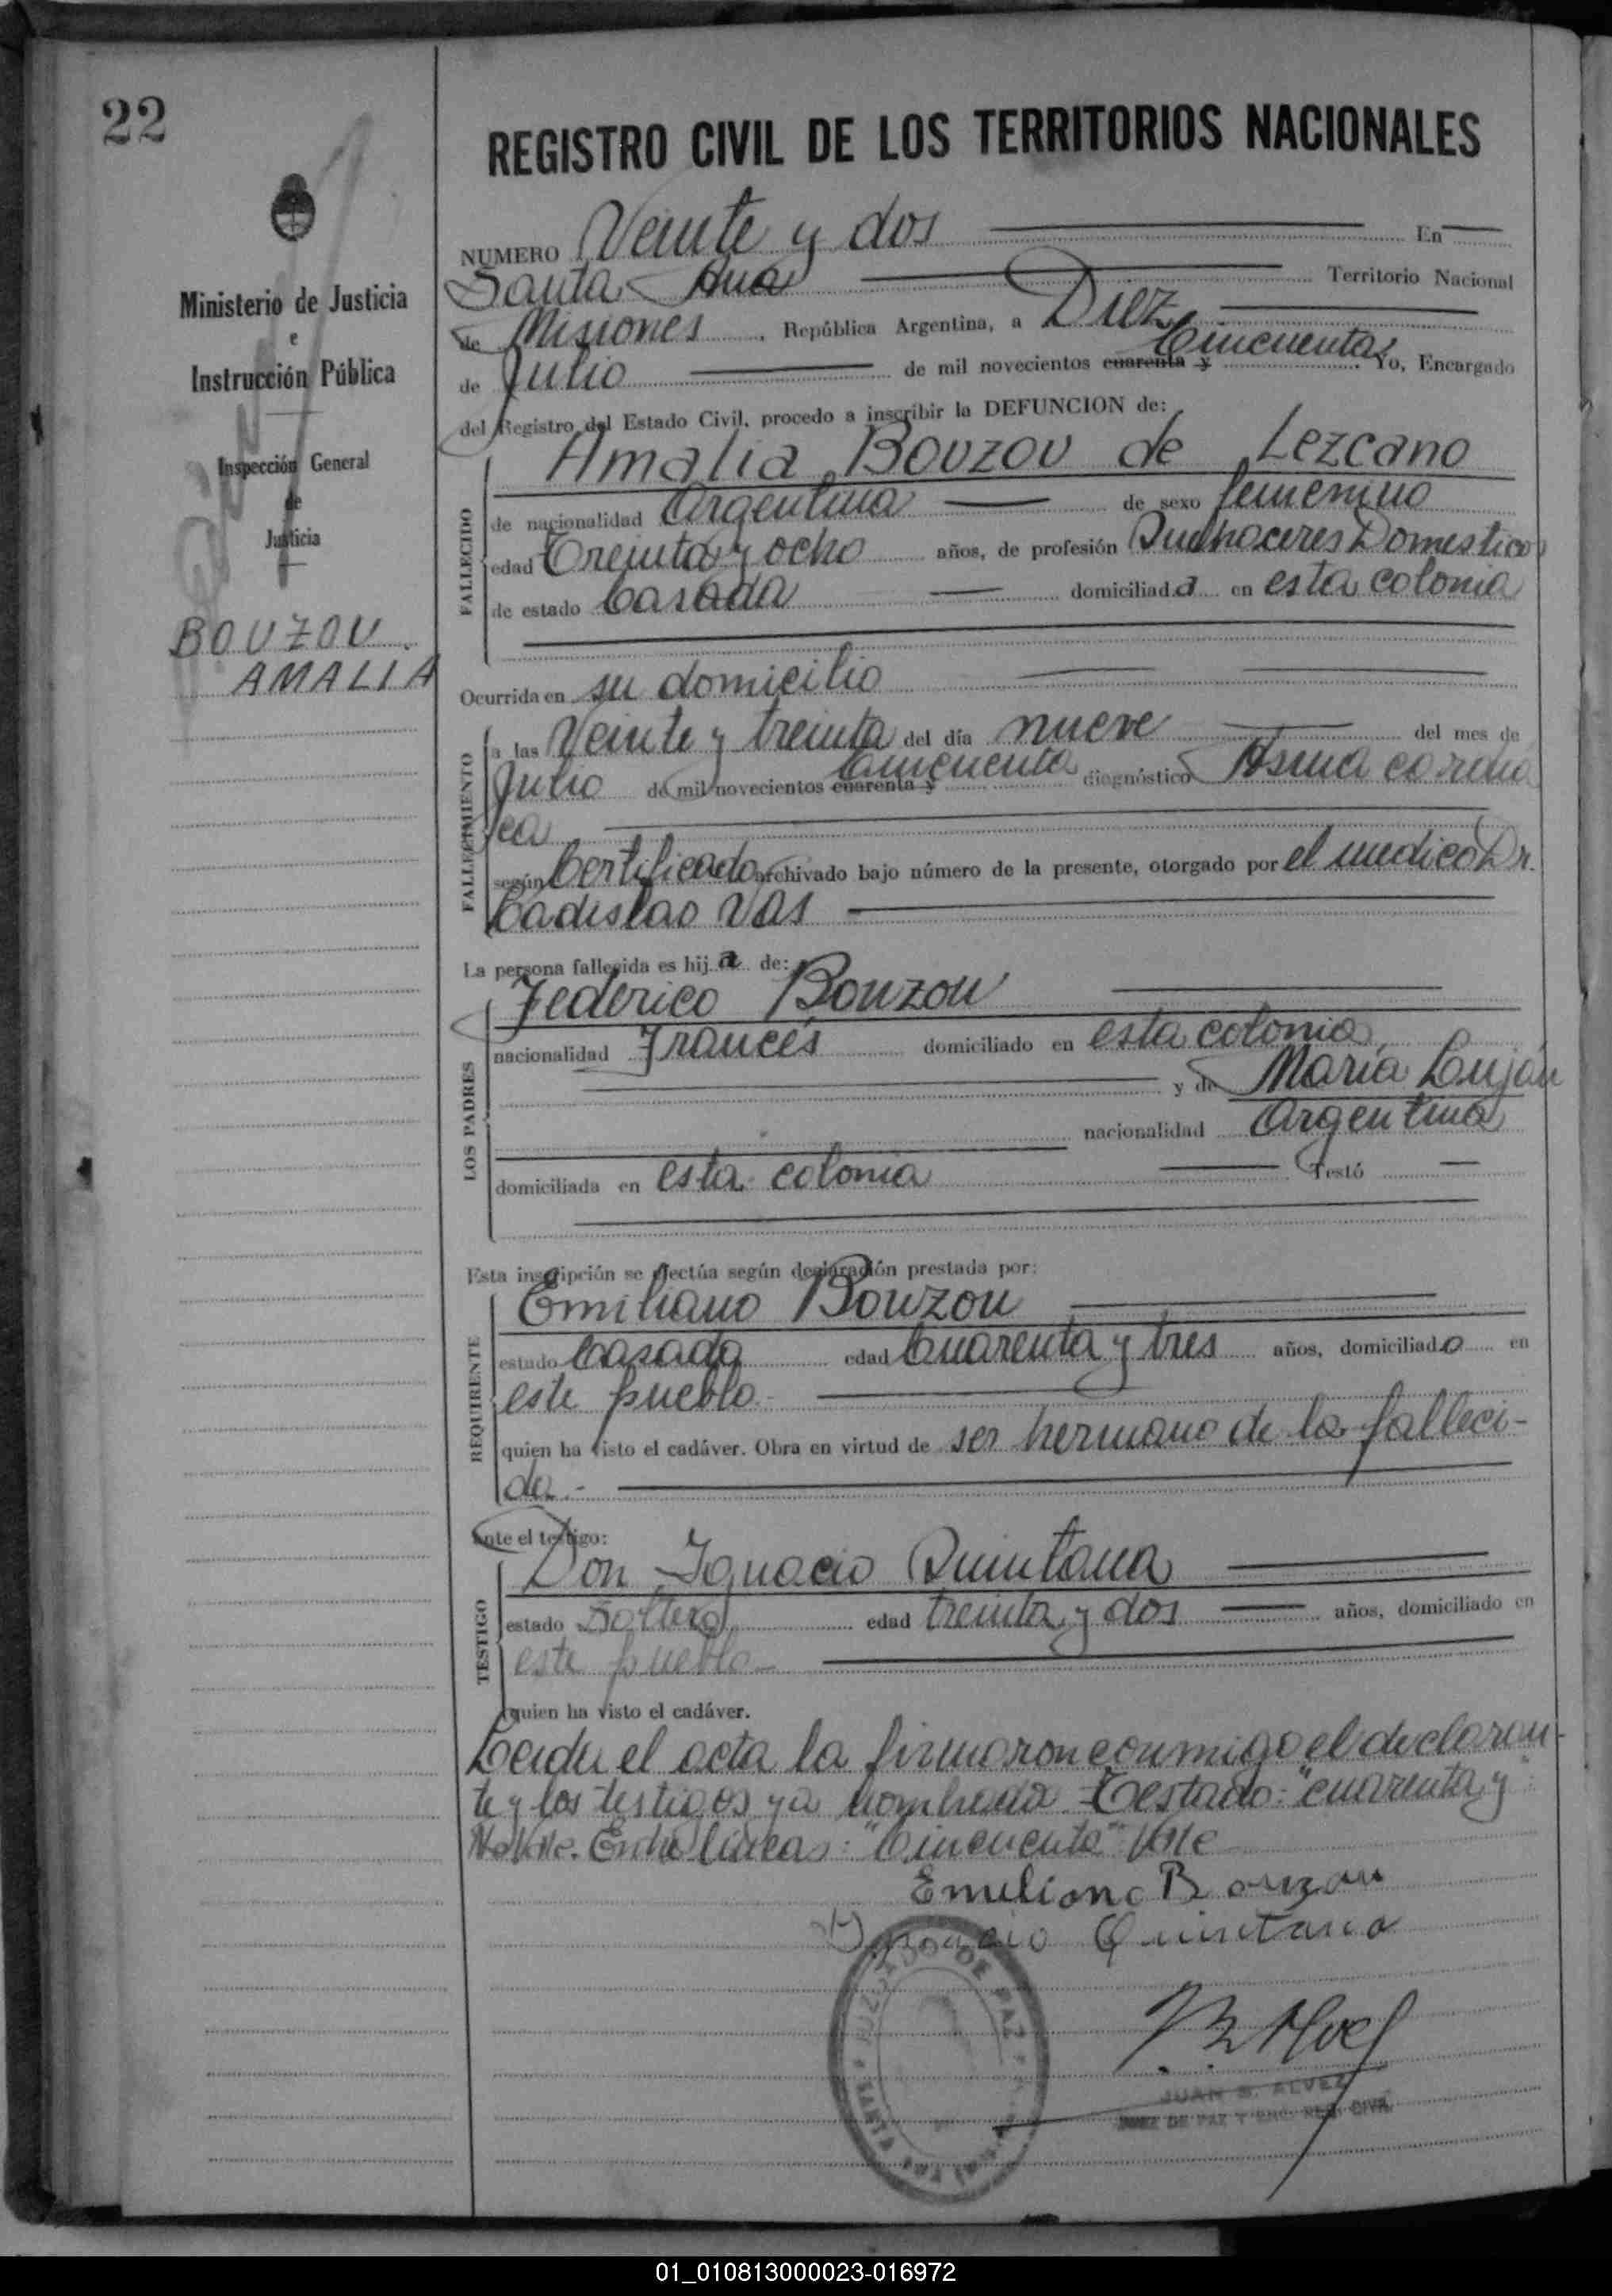 22
Ministerio de Justicia
e
Instrucción Pública
Inspección General
de
Justicia
BOUZOU
AMALIA
REGISTRO CIVIL DE LOS TERRITORIOS NACIONALES
NUMERO Veinte y dos En
Santa Ana Territorio Nacional
de Misiones, República Argentina, a Diez
de Julio de mil novecientos cuarenta y Cincuenta. Yo, Encargado
del Registro del Estado Civil, procedo a inscribir la DEFUNCION de:
FALLECIDO
Amalia Bouzou de Lezcano
de nacionalidad Argentina de sexo femenino
edad Treinta y ocho años, de profesión Quehaceres Domestico
de estado Casada domiciliada en esta colonia
Ocurrida en su domicilio
FALLECIMIENTO
a las Veinte y treinta del día nueve del mes de
Julio de mil novecientos cuarenta y Cincuenta diagnóstico Asma cardia
ca
según Certificado archivado bajo número de la presente, otorgado por el medico Dr.
Ladislao Vas
La persona fallecida es hija de:
LOS PADRES
Federico Bouzou
nacionalidad Francés domiciliado en esta colonia
y de María Luján
nacionalidad Argentina
domiciliada en esta colonia Testó
Esta inscripción se efectúa según declaración prestada por:
REQUIRENTE
Emiliano Bouzou
estado Casado edad Cuarenta y tres años, domiciliado en
este pueblo.
quien ha visto el cadáver. Obra en virtud de ser hermano de la falleci-
da.-
Ante el testigo:
TESTIGO
Don Ignacio Quintana
estado Soltero edad treinta y dos años, domiciliado en
este pueblo
quien ha visto el cadáver.
Leida el acta la firmaron conmigo el declaran-
te y los testigos ya nombrada Testado: "cuarenta y"
No Vale. Entre líneas: "Cincuenta" Vale
Emiliano Bouzou
Ignacio Quintana
JUZGADO DE PAZ
SANTA ANA
JUAN B. ALVEZ
JUEZ DE PAZ Y ENC. REG. CIVIL
01_010813000023-016972